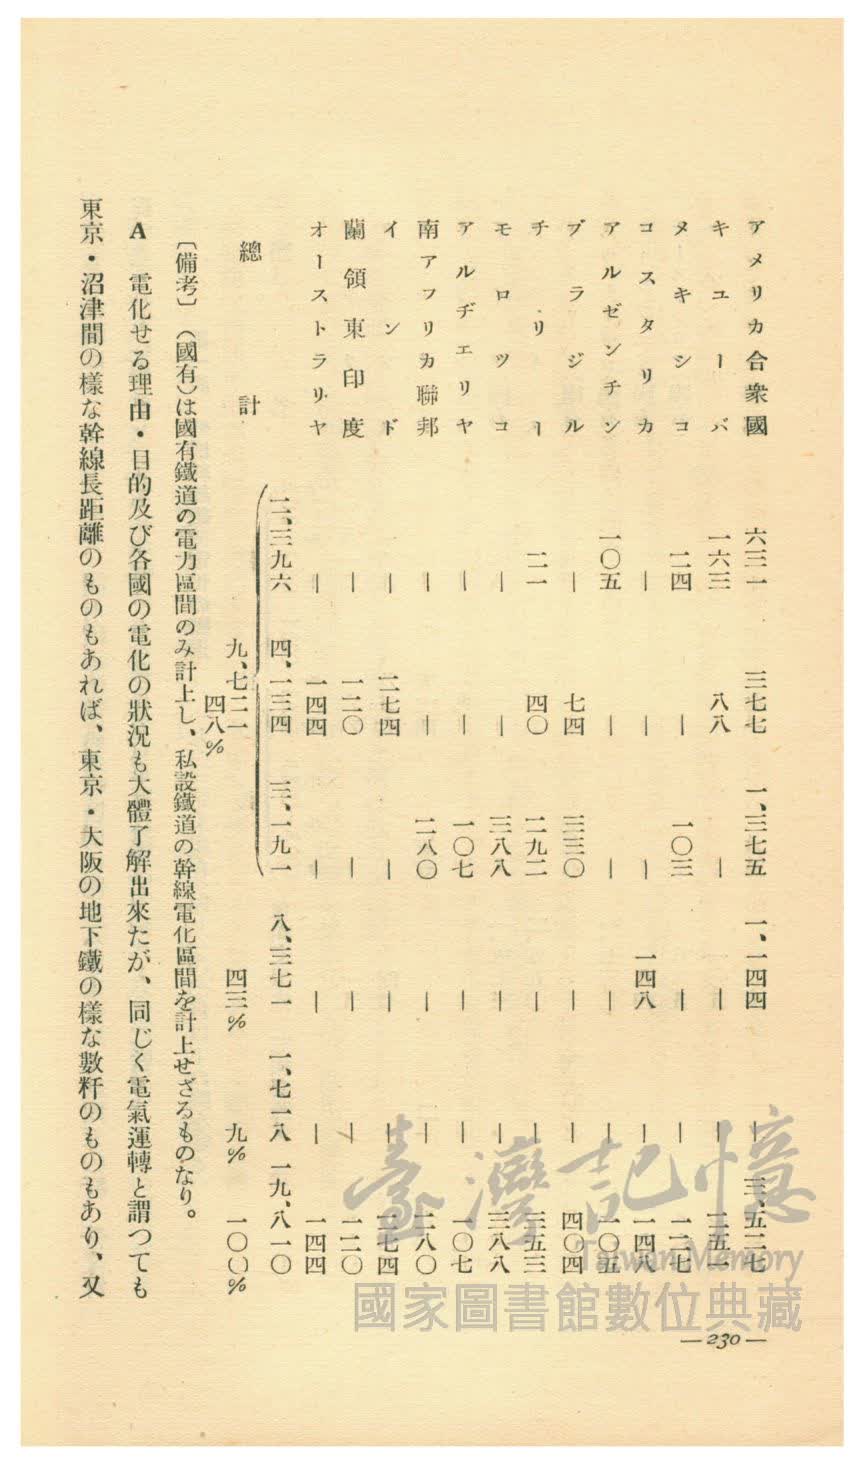 アメリカ合衆國 六三一 三七七 一、三七五 一、一四四 — 三、五二七
キユーバ 一六三 八八 — — — 二五一
メキシコ 二四 — 一〇三 — — 一二七
コスタリカ — — — 一四八 — 一四八
アルゼンチン 一〇五 — — — — 一〇五
ブラジル — 七四 三三〇 — — 四〇四
チリー 二一 四〇 二九二 — — 三五三
モロツコ — — 三八八 — — 三八八
アルヂエリヤ — — 一〇七 — — 一〇七
南アフリカ聯邦 — — 二八〇 — — 二八〇
インド — 二七四 — — — 二七四
蘭領東印度 — 一二〇 — — — 一二〇
オーストラリヤ — 一四四 — — — 一四四
總計 二、三九六 四、一三四 三、一九一 八、三七一 一、七一八 一九、八一〇
九、七二一 四三% 九% 一〇〇%
四八%
〔備考〕(國有)は國有鐵道の電力區間のみ計上し、私設鐵道の幹線電化區間を計上せざるものなり。
A 電化せる理由・目的及び各國の電化の狀況も大體了解出來たが、同じく電氣運轉と謂つても
東京・沼津間の樣な幹線長距離のものもあれば、東京・大阪の地下鐵の樣な數粁のものもあり、又
—230—
臺灣記憶
Taiwan Memory
國家圖書館數位典藏